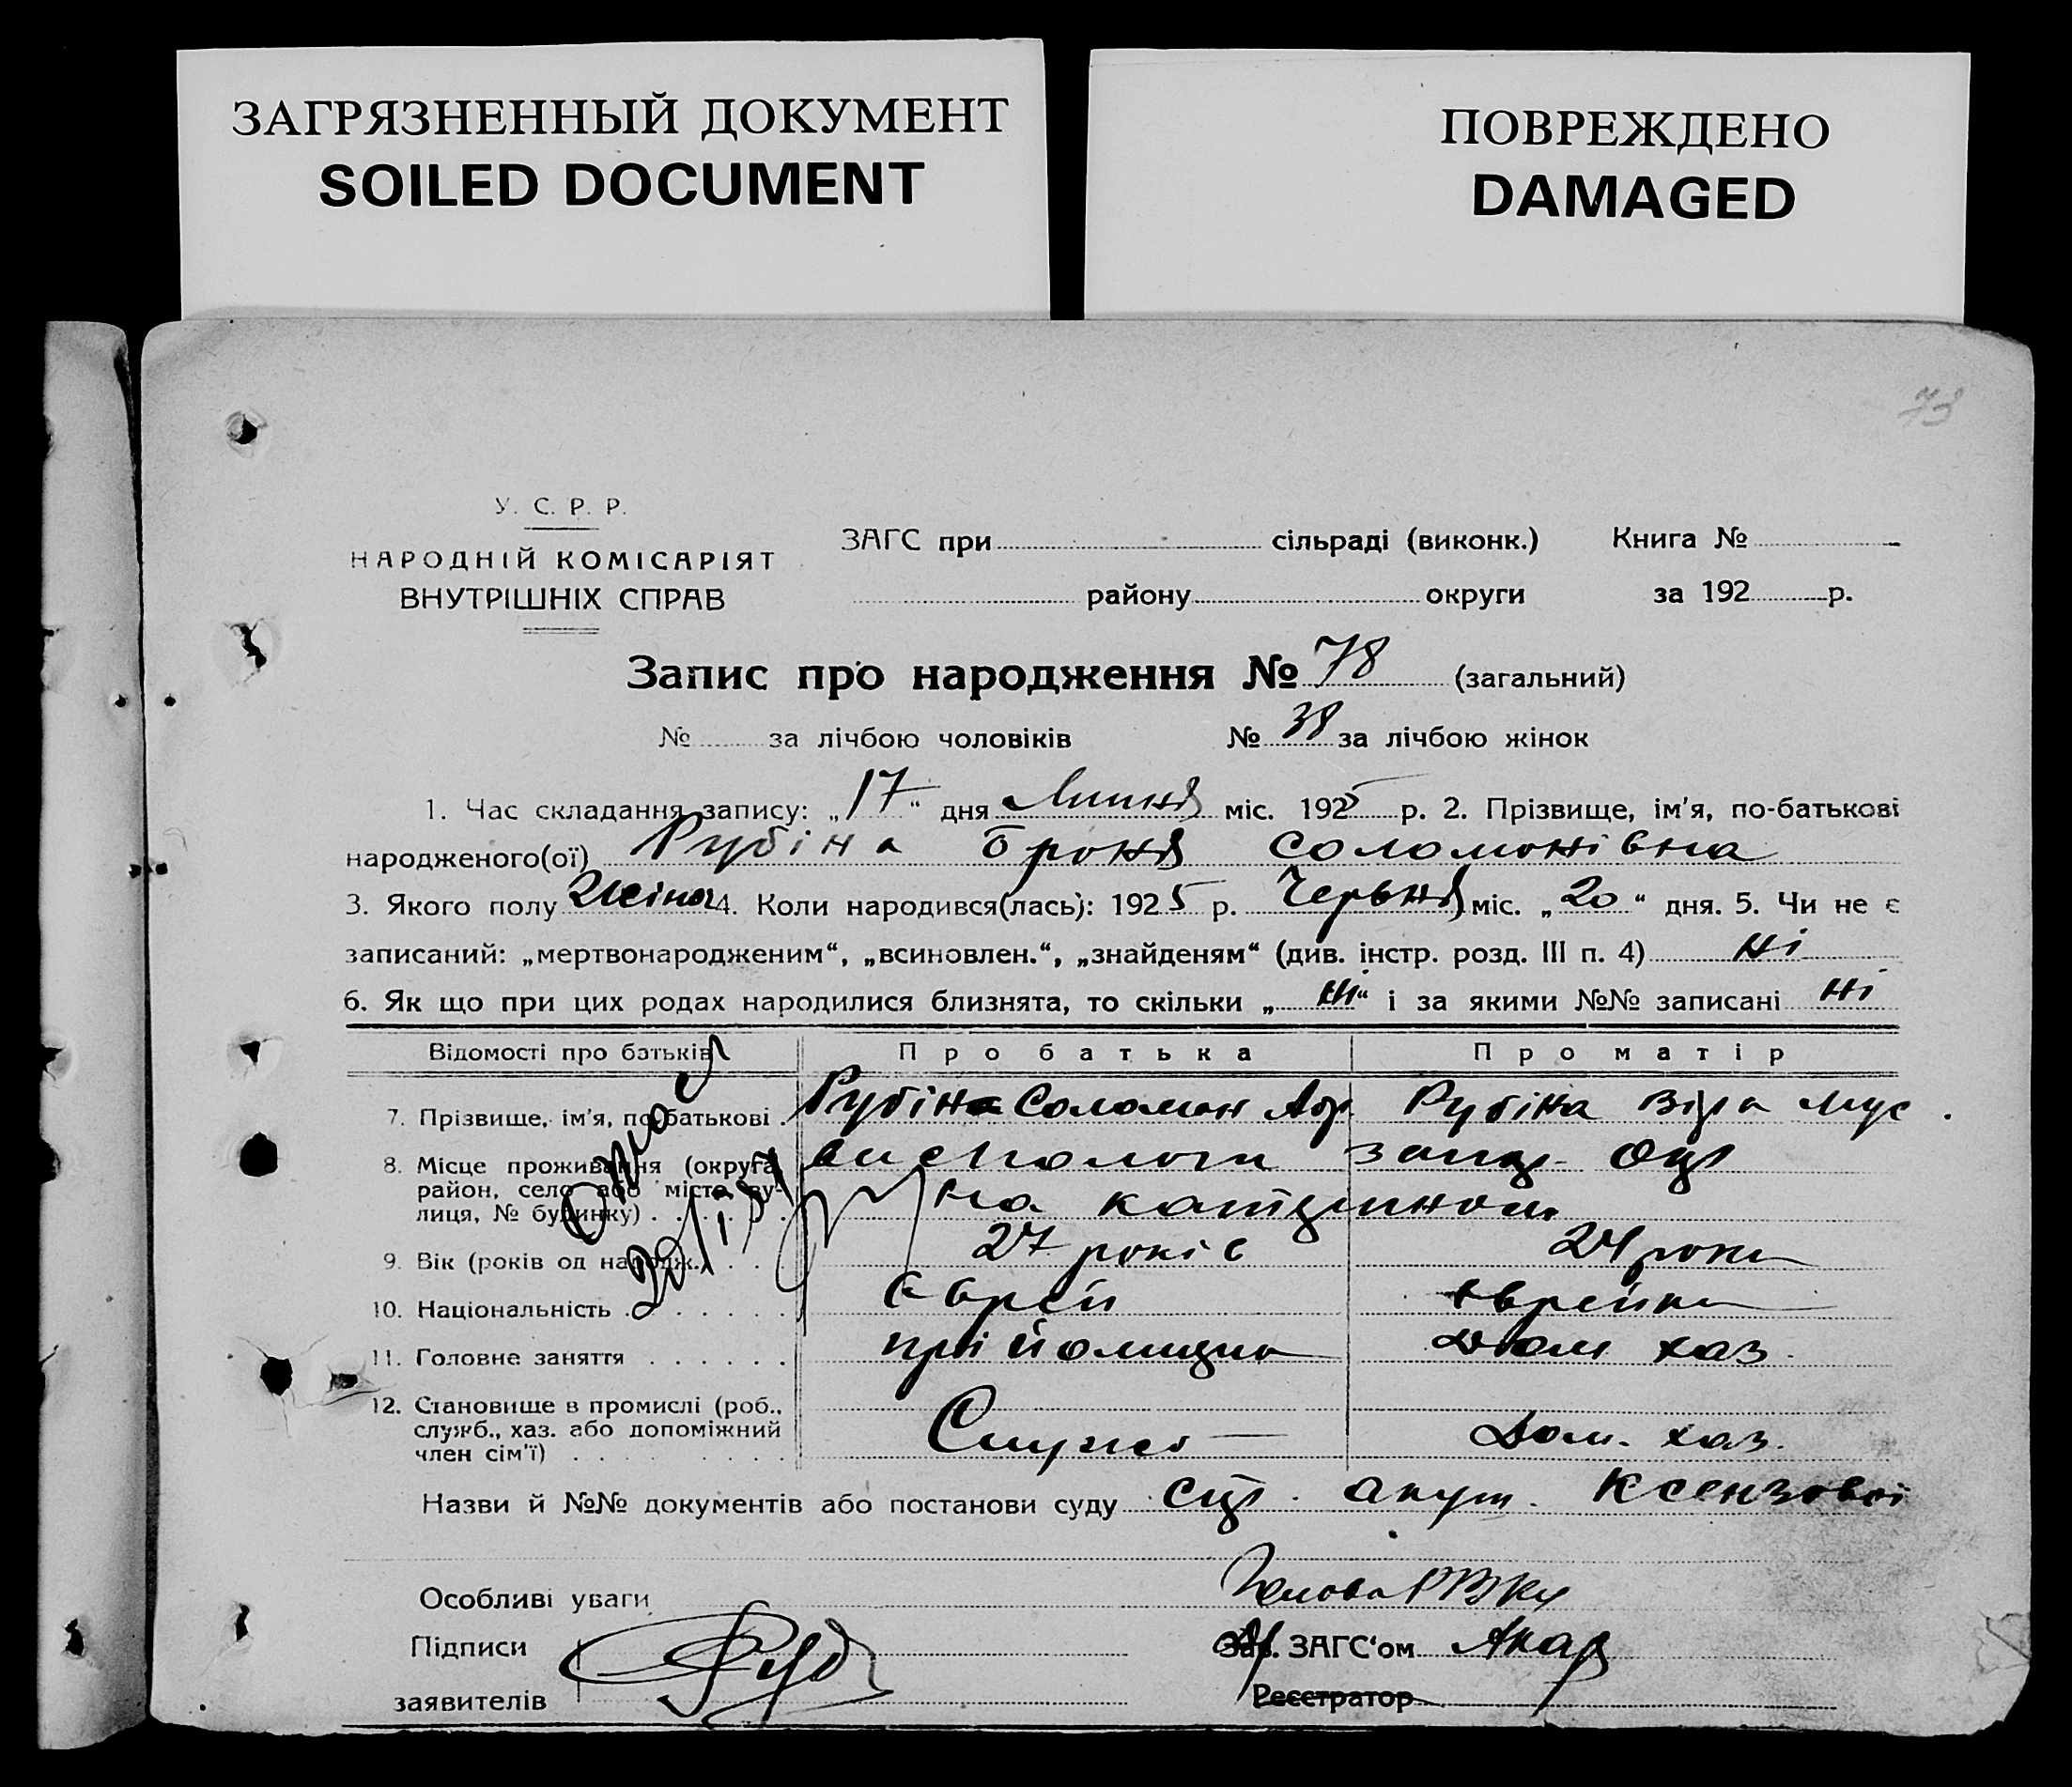 ЗАГРЯЗНЕННЫЙ ДОКУМЕНТ
SOILED DOCUMENT
ПОВРЕЖДЕНО
DAMAGED
У. С. Р. Р.
НАРОДНІЙ КОМІСАРІЯТ
ВНУТРІШНІХ СПРАВ
ЗАГС при сільраді (виконк.) Книга №
району округи за 192 р.
Запис про народження № 78 (загальний)
№ за лічбою чоловіків № 38 за лічбою жінок
1. Час складання запису: „17“ дня Липня міс. 1925 р. 2. Прізвище, ім’я, по-батькові
народженого(ої) Рубіна Броня Соломонівна
3. Якого полу Жіноч 4. Коли народився(лась): 1925 р. Червня міс. „20“ дня. 5. Чи не є
записаний: „мертвонародженим“, „всиновлен.“, „знайденям“ (див. інстр. розд. III п. 4) Ні
6. Як що при цих родах народилися близнята, то скільки „ні“ і за якими №№ записані ні
Відомості про батьків Про батька Про матір
7. Прізвище, ім’я, по-батькові Рубін Соломон Рубіна Віра Мус.
8. Місце проживання (округа,
район, село або місто, ву-
лиця, № будинку)
9. Вік (років од народж.) 27 років 24 роки
10. Національність Єврей Єврейка
11. Головне заняття прійомщик Дом хаз.
12. Становище в промислі (роб.,
служб., хаз. або допоміжний
член сім’ї) Служб Дом. хаз.
Назви й №№ документів або постанови суду акуш. Ксензової
Особливі уваги Голова РВК
Підписи Зав. ЗАГС‘ом
заявителів Реєстратор